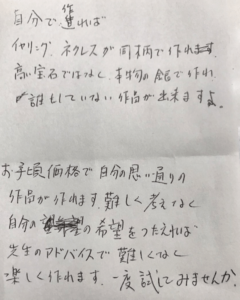 自分で作れば
イヤリング、ネクレスが同柄で作れます
高い宝石ではなく、本物の銀で作れ
誰もしていない作品が出来ますよ。
お手頃価格で自分の思い通りの
作品が作れます。難しく考えなく
自分の希望をつたえれば
先生のアドバイスで難しくなく
楽しく作れます。一度試してみませんか。